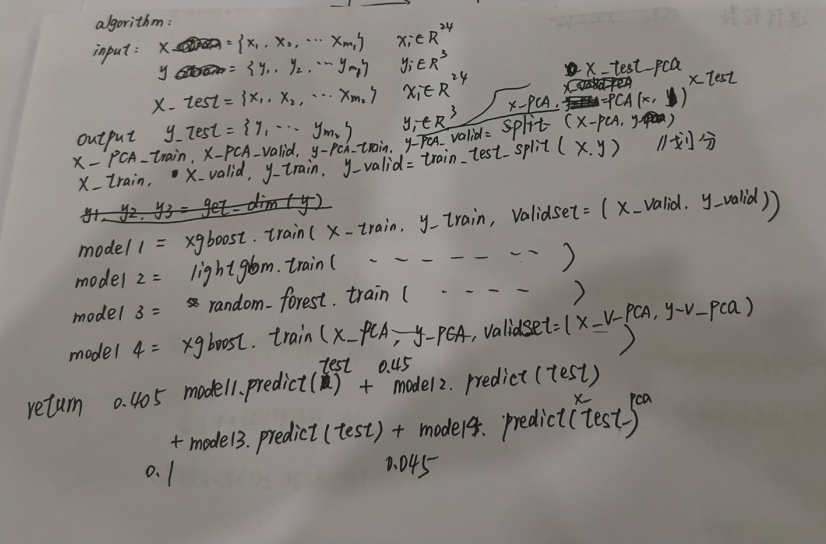 algorithm:
input: X = {x₁, x₂, ··· xm₁} xᵢ∈R²⁴
y = {y₁, y₂, ··· ym₁} yᵢ∈R³
X_test = {x₁, x₂, ··· xm₂} xᵢ∈R²⁴
output y_test = {y₁, ··· ym₂} yᵢ∈R³
X-PCA, X-test-pca = PCA(x, X-test)
X_PCA_train, X-PCA_valid, y-PCA-train, y-PCA_valid = split (X-PCA, y)
X_train, X_valid, y_train, y_valid = train_test_split (X, y) //划分
y1, y2, y3 = get_dim(y)
model 1 = xgboost.train( X_train, y_train, validset = ( X_valid, y_valid))
model 2 = lightgbm.train( - - - - - - - - )
model 3 = random_forest.train ( - - - - )
model 4 = xgboost.train(X_PCA, y_PCA, validset=(X_V_PCA, y-V_PCA))
return 0.405 model1.predict(test) + 0.45 model2.predict(test)
+ 0.1 model3.predict(test) + 0.045 model4.predict(x_test_pca)